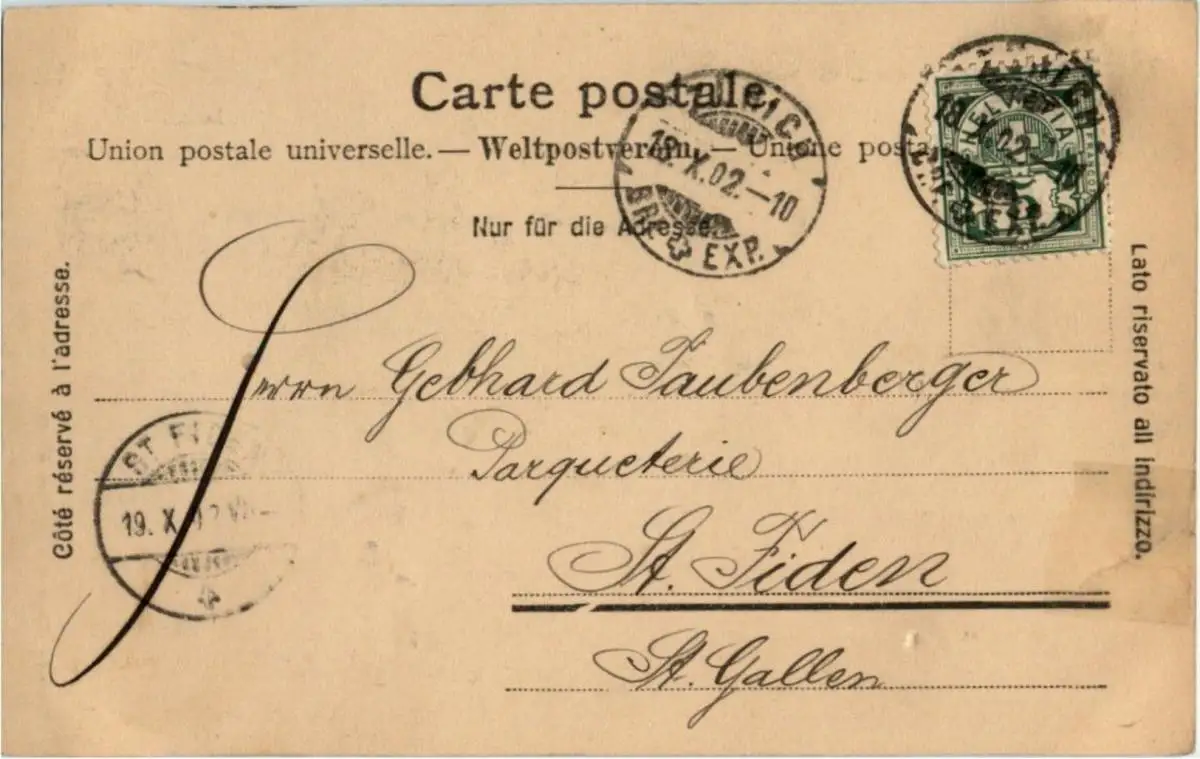 Carte postale.
Union postale universelle. — Weltpostverein. — Unione posta
Nur für die Adresse.
ZÜRICH
18.X.02.–10
BRF. EXP.
ZÜRICH
18. X.
EXP.
HELVETIA
5
Côté réservé à l'adresse.
Lato riservato all indirizzo.
Herrn Gebhard Taubenberger
Parqueterie
St. Fiden
St. Gallen
ST. FIDEN
19. X. 02 VII–